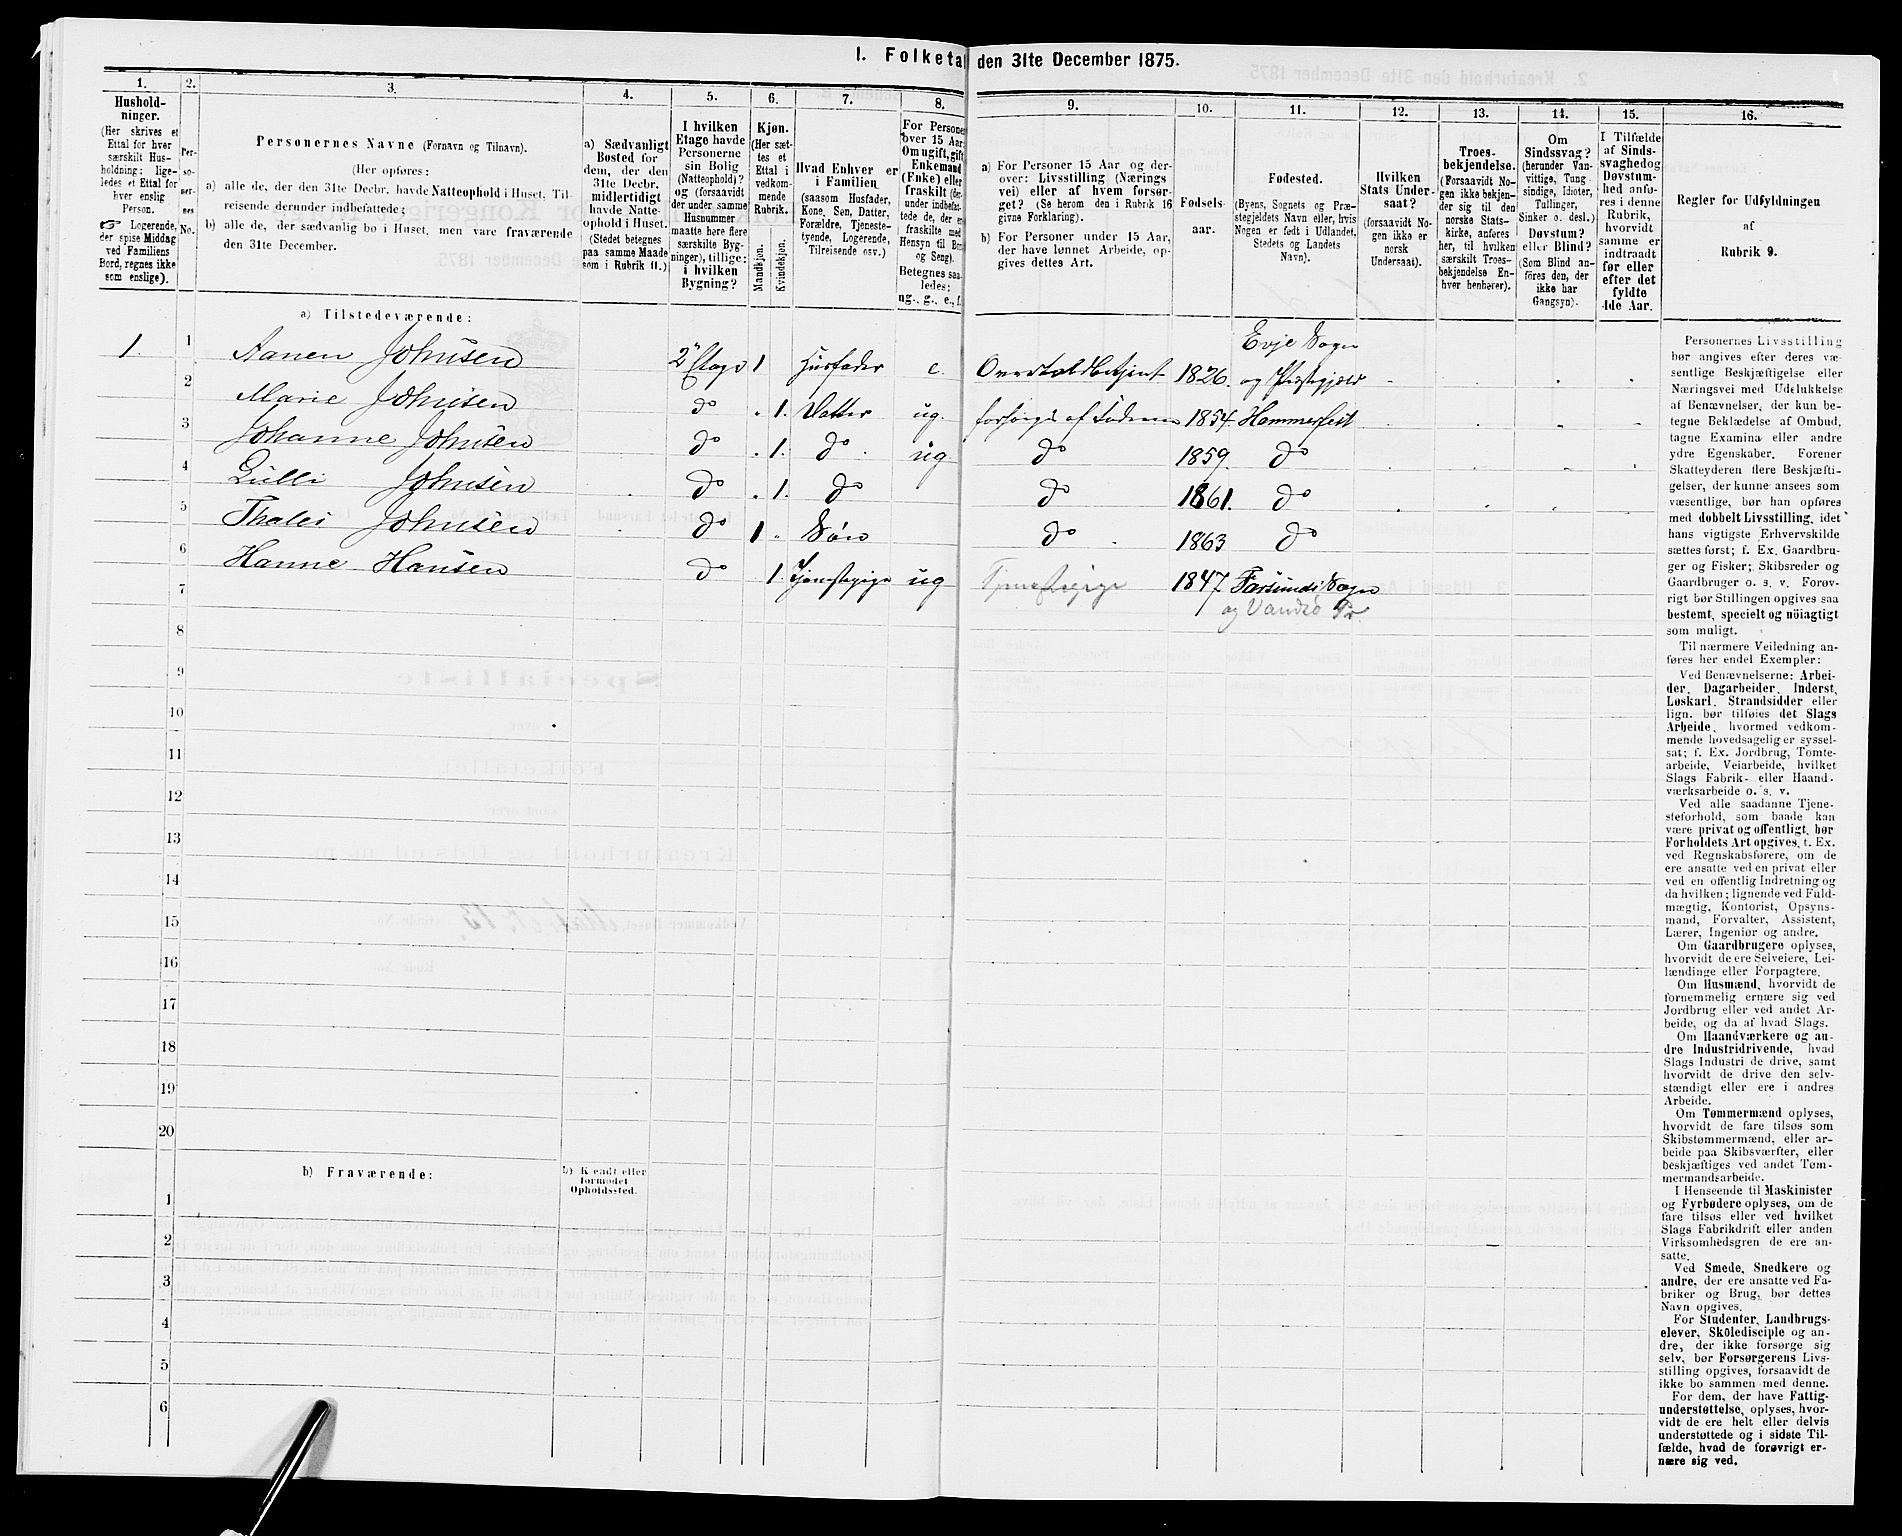 I. Folketal den 31te December 1875.
1. 2. 3. 4. 5. 6. 7. 8. 9. 10. 11. 12. 13. 14. 15. 16.
Hushold-
ninger.
(Her skrives et
Ettal for hver
særskilt Hus-
holdning; lige-
ledes et Ettal for
hver enslig
Person.
☞ Logerende,
der spise Middag
ved Familiens
Bord, regnes ikke
som enslige).
Per-
so-
ner-
nes
No.
Personernes Navne (Fornavn og Tilnavn).
(Her opføres:
a) alle de, der den 31te Decbr. havde Natteophold i Huset, Til-
reisende derunder indbefattede;
b) alle de, der sædvanlig bo i Huset, men vare fraværende
den 31te December.
a) Sædvanligt
Bosted for
dem, der den
31te Decbr.
midlertidigt
havde Natte-
ophold i Huset.
(Stedet betegnes
paa samme Maade
som i Rubrik 11.)
I hvilken
Etage havde
Personerne
sin Bolig
(Natteophold)?
og (forsaavidt
der under samme
Husnummer
maatte høre flere
særskilte Byg-
ninger), tillige:
i hvilken
Bygning?
Kjøn.
(Her sæt-
tes et
Ettal i
vedkom-
mende
Rubrik.
Mandkjøn.
Kvindekjøn.
Hvad Enhver er
i Familien
(saasom Husfader,
Kone, Søn, Datter,
Forældre, Tjeneste-
tyende, Logerende,
Tilreisende osv.)
For Personer
over 15 Aar:
Om ugift, gift,
Enkemand
(Enke) eller
fraskilt (der-
under indbefat-
tede de, der ere
fraskilte med
Hensyn til Bord
og Seng).
Betegnes saa-
ledes:
ug., g., e., f.
a) For Personer 15 Aar og der-
over: Livsstilling (Nærings
vei) eller af hvem forsør-
get? (Se herom den i Rubrik 16
givne Forklaring).
b) For Personer under 15 Aar,
der have lønnet Arbeide, op-
gives dettes Art.
Fødsels-
aar.
Fødested.
(Byens, Sognets og Præ-
stegjeldets Navn eller, hvis
Nogen er født i Udlandet,
Stedets og Landets
Navn).
Hvilken
Stats Under-
saat?
(forsaavidt No-
gen ikke er
norsk
Undersaat).
Troes-
bekjendelse.
(Forsaavidt No-
gen ikke bekjen-
der sig til den
norske Stats-
kirke, anføres
her, til hvilken
særskilt Troes-
bekjendelse En-
hver henhører).
Om
Sindssvag?
(herunder Van-
vittige, Tung-
sindige, Idioter,
Tullinger,
Sinker o. desl.)
Døvstum?
eller Blind?
(Som Blind an-
føres den, der
ikke har
Gangsyn).
I Tilfælde
af Sinds-
svaghed og
Døvstum-
hed anfø-
res i denne
Rubrik,
hvorvidt
samme er
indtraadt
før eller
efter det
fyldte
4de Aar.
Regler for Udfyldningen
af
Rubrik 9.
a) Tilstedeværende:
1. 1 Aanen Johnsen 2' Etage 1 Husfader e. Overtoldbetjent 1826. Evje Sogn og Præstegjeld
2 Marie Johnsen do 1. Datter ug. forsørges af Faderen 1854. Hammerfest
3 Johanne Johnsen do 1. do ug do 1859. do
4 Lulli Johnsen do 1. do do 1861. do
5 Thales Johnsen do 1 Søn do 1863 do
6 Hanne Hansen do 1. Tjenestepige ug Tjenestepige 1847. Farsunds Sogn
og Vandsø Pr.
7
8
9
10
11
12
13
14
15
16
17
18
19
20
b) Fraværende:
b) Kjendt eller
formodet
Opholdssted.
1
2
3
4
5
6
Personernes Livsstilling
bør angives efter deres væ-
sentlige Beskjæftigelse eller
Næringsvei med Udelukkelse
af Benævnelser, der kun be-
tegne Beklædelse af Ombud,
tagne Examina eller andre
ydre Egenskaber. Forener
Skatteyderen flere Beskjæfti-
gelser, der kunne ansees som
væsentlige, bør han opføres
med dobbelt Livsstilling, idet
hans vigtigste Erhvervskilde
sættes først; f. Ex. Gaardbru-
ger og Fisker; Skibsreder og
Gaardbruger o. s. v. Forøv-
rigt bør Stillingen opgives saa
bestemt, specielt og nöiagtigt
som muligt.
Til nærmere Veiledning an-
føres her endel Exempler:
Ved Benævnelserne: Arbei-
der, Dagarbeider, Inderst,
Løskarl, Strandsidder eller
lign. bør tilføies det Slags
Arbeide, hvormed vedkom-
mende hovedsagelig er syssel-
sat; f. Ex. Jordbrug, Tomte-
arbeide, Veiarbeide, hvilket
Slags Fabrik- eller Haand-
værksarbeide o. s. v.
Ved alle saadanne Tjene-
steforhold, som baade kan
være privat og offentligt, bør
Forholdets Art opgives, t. Ex.
ved Regnskabsførere, om de
ere ansatte ved en privat eller
ved en offentlig Indretning og
da hvilken; lignende ved Fuld-
mægtig, Kontorist, Opsyns-
mand, Forvalter, Assistent,
Lærer, Ingeniør og andre.
Om Gaardbrugere oplyses,
hvorvidt de ere Selveiere, Lei-
lændinge eller Forpagtere.
Om Husmænd, hvorvidt de
fornemmelig ernære sig ved
Jordbrug eller ved andet Ar-
beide, og da af hvad Slags.
Om Haandværkere og an-
dre Industridrivende, hvad
Slags Industri de drive, samt
hvorvidt de drive den selv-
stændigt eller ere i andres
Arbeide.
Om Tømmermænd oplyses,
hvorvidt de fare tilsøs som
Skibstømmermænd, eller ar-
beide paa Skibsværfter, eller
beskjæftiges ved andet Tøm-
mermandsarbeide.
I Henseende til Maskinister
og Fyrbødere oplyses, om de
fare tilsøs eller ved hvilket
Slags Fabrikdrift eller anden
Virksomhedsgren de ere an-
satte.
Ved Smede, Snedkere og
andre, der ere ansatte ved Fa-
briker og Brug, bør dettes
Navn opgives.
For Studenter, Landbrugs-
elever, Skoledisciple og an-
dre, der ikke forsørge sig
selv, bør Forsørgerens Livs-
stilling opgives, forsaavidt de
ikke bo sammen med denne.
For dem, der have Fattig-
understøttelse, oplyses, hvor-
vidt de ere helt eller delvis
understøttede og i sidste Til-
fælde, hvad de forøvrigt er-
nære sig ved.